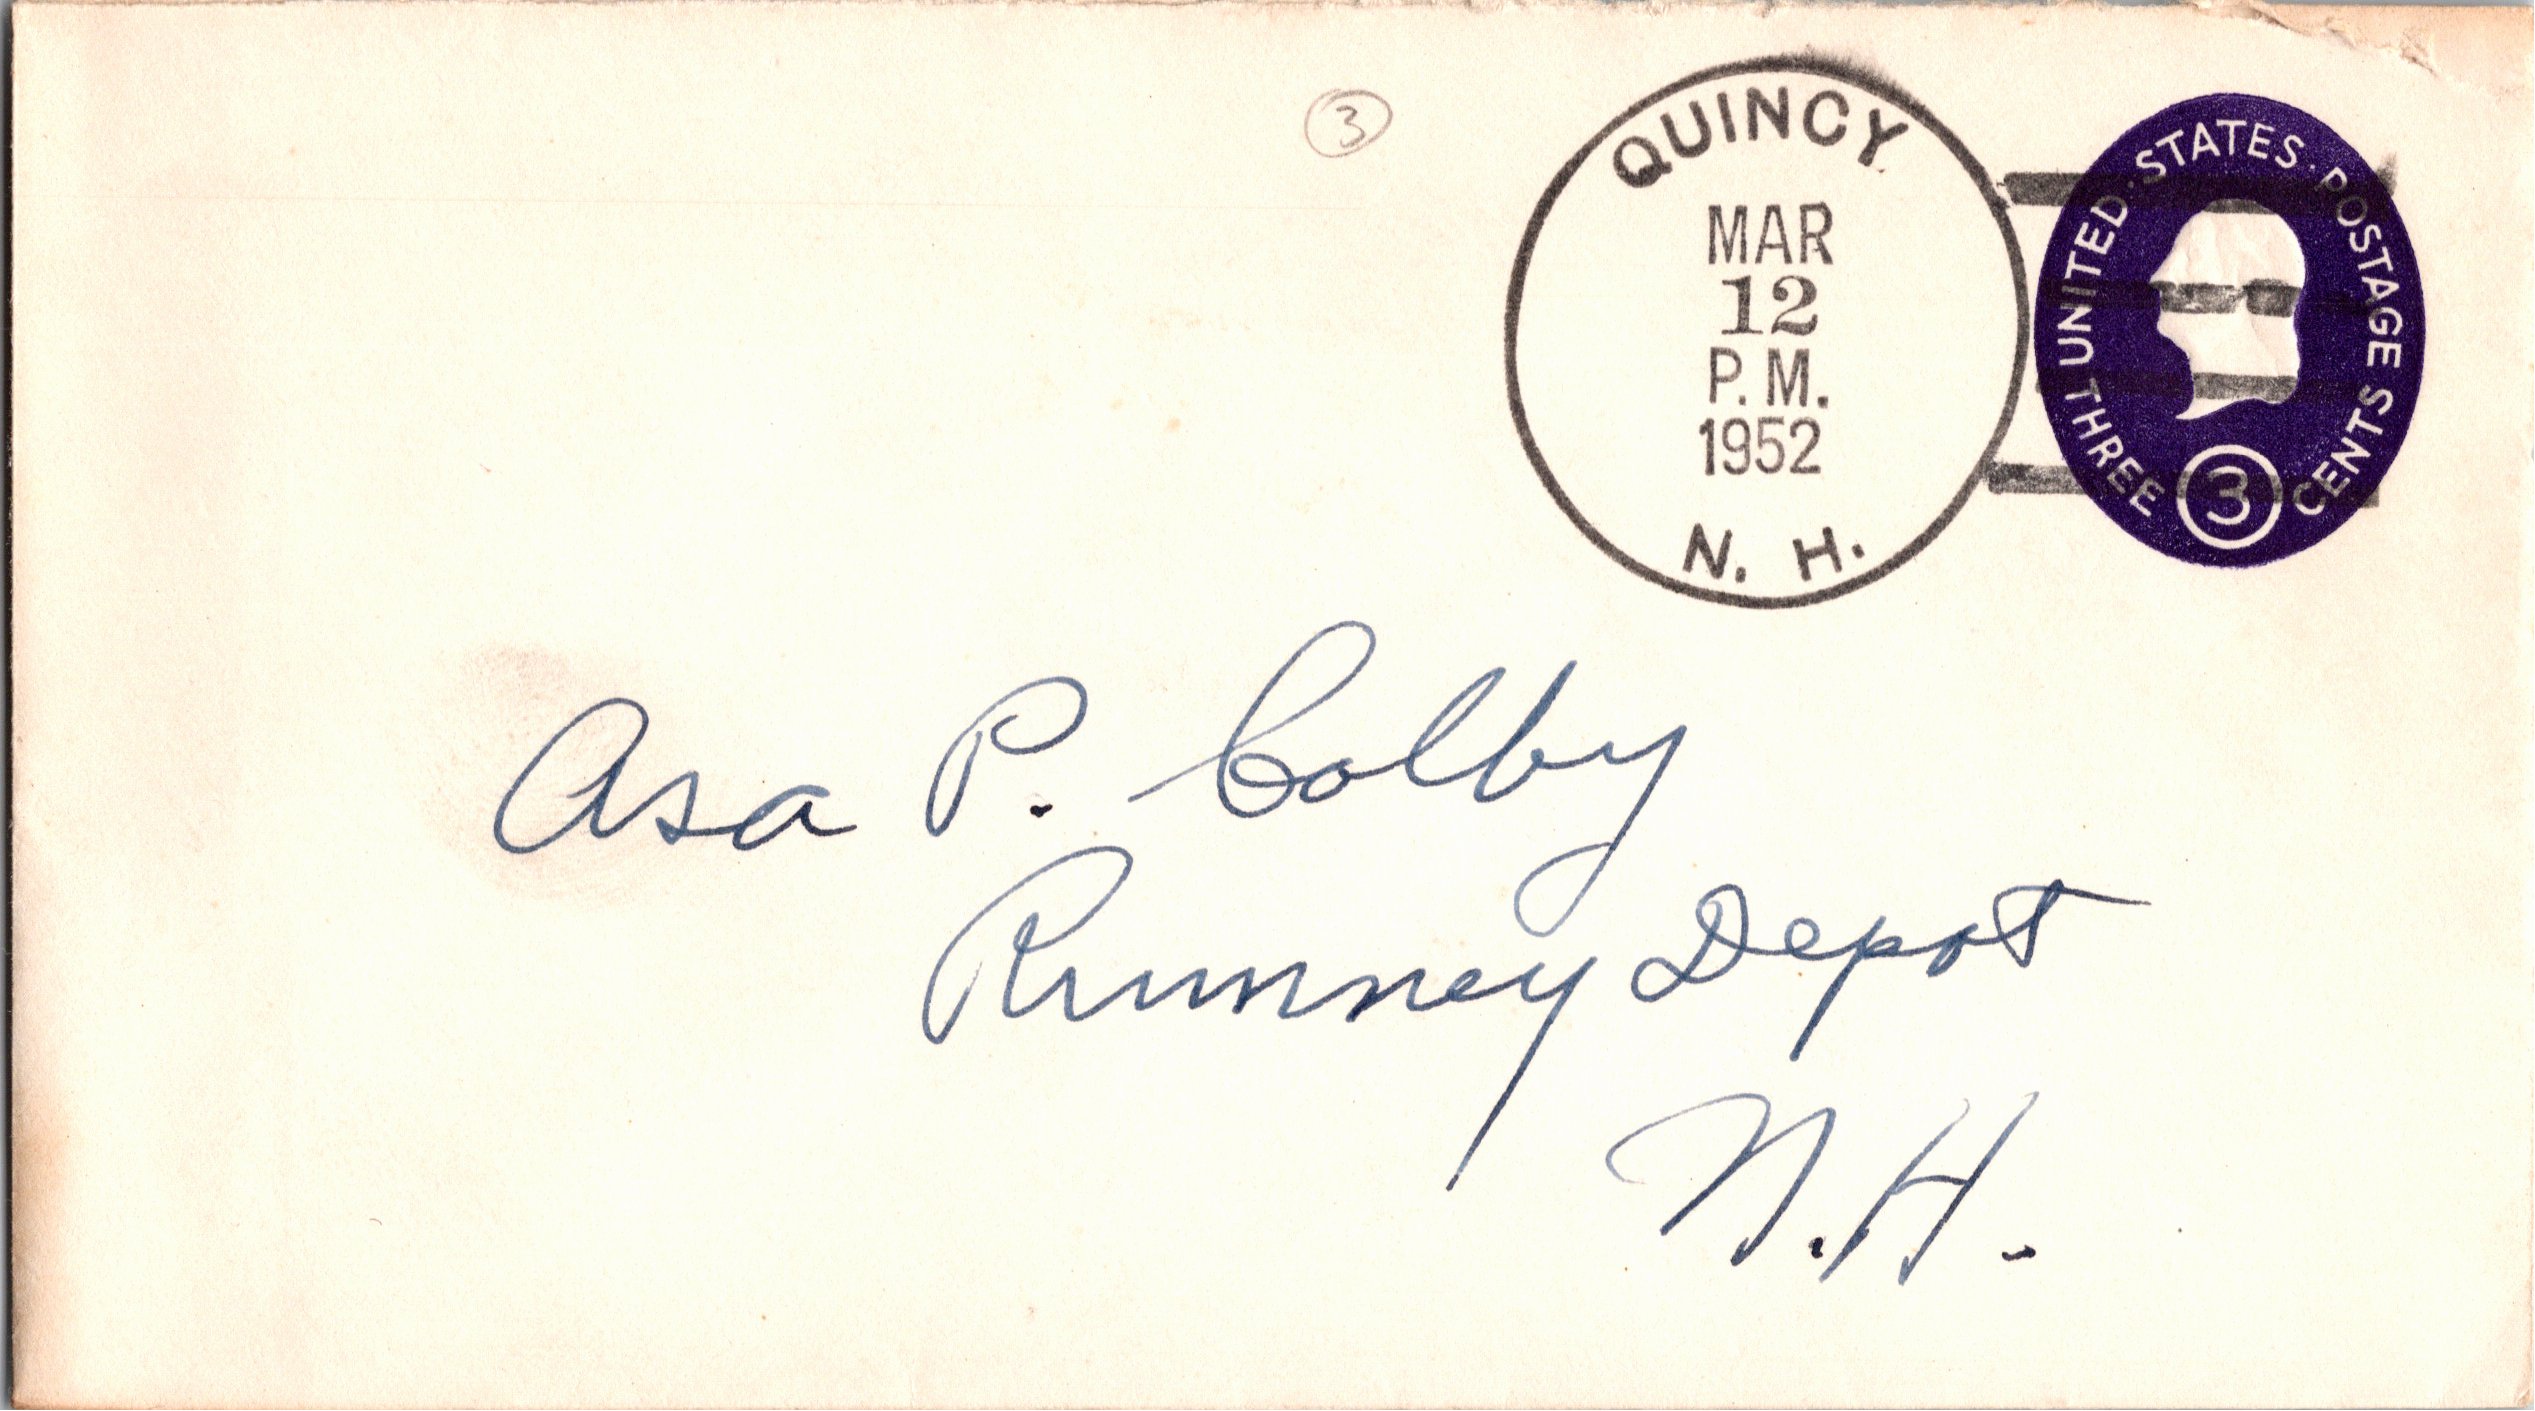 3
QUINCY
MAR
12
P.M.
1952
N. H.
UNITED · STATES · POSTAGE
THREE 3 CENTS
Asa P. Colby
Rumney Depot
N.H.